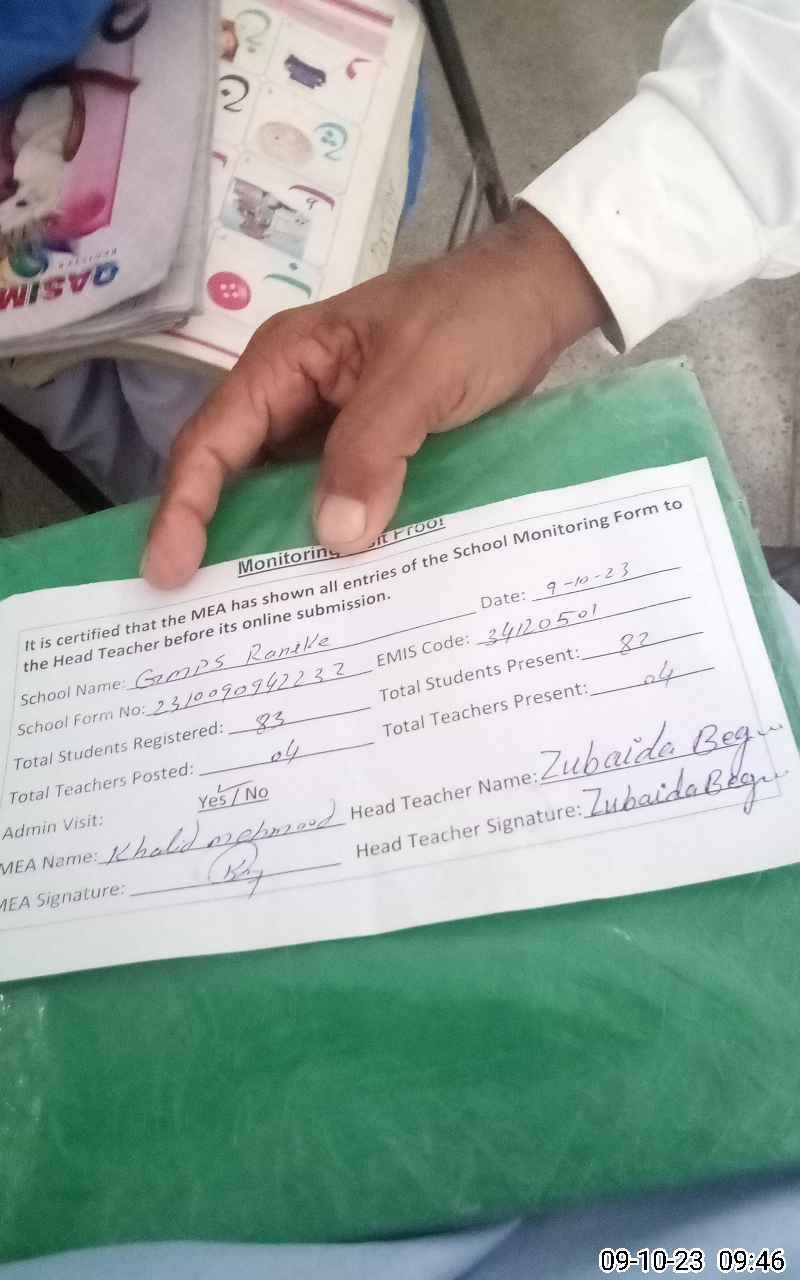 QASIM
REGISTER
Monitoring Visit Proof
It is certified that the MEA has shown all entries of the School Monitoring Form to
the Head Teacher before its online submission.
Date: 9-10-23
School Name: GMPS
EMIS Code: 34120501
School Form No: 2310090942232
Total Students Present: 82
Total Students Registered: 83
Total Teachers Present: 04
Total Teachers Posted: 04
Admin Visit: Yes / No
Head Teacher Name: Zubaida Begu
MEA Name: Khalid mehmood
Head Teacher Signature: Zubaida Begu
MEA Signature:
09-10-23 09:46